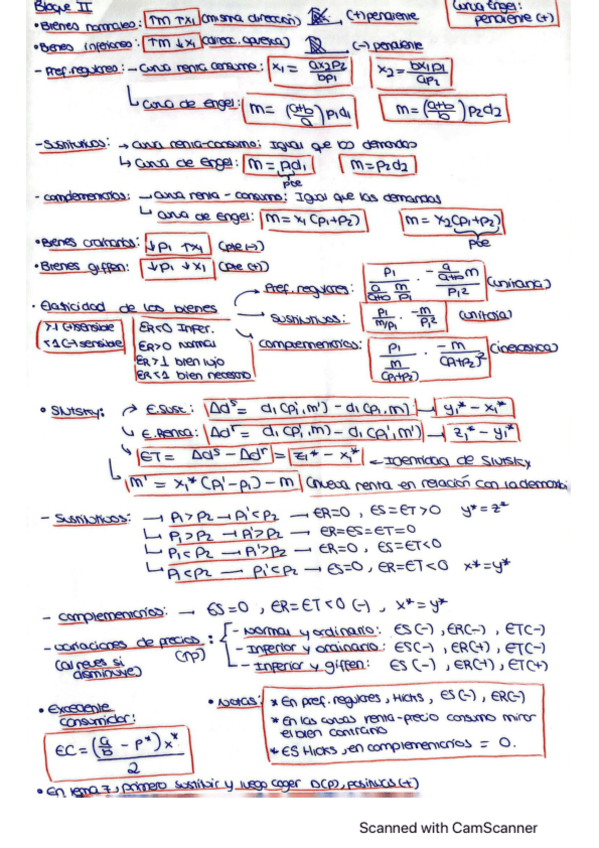 Bloque II
• Bienes normales: ↑m ↑x₁ (misma dirección) (+) pendiente
Curva Engel: pendiente (+)
• Bienes inferiores: ↑m ↓x₁ (direcc. opuesta) (-) pendiente
- Pref. regulares: - Curva renta consumo: x₁ = ax₂p₂/bp₁ x₂ = bx₁p₁/ap₂
↳ Curva de engel: m = ((a+b)/a) p₁d₁ m = ((a+b)/b) p₂d₂
- Sustitutivos: → curva renta-consumo: Igual que las demandas
↳ Curva de engel: m = p₁d₁ m = p₂d₂
pte
- complementarios: - curva renta - consumo: Igual que las demandas
↳ curva de engel: m = x₁(p₁+p₂) m = x₂(p₁+p₂)
pte
• Bienes ordinarios: ↓p₁ ↑x₁ (pte(-))
• Bienes giffen: ↓p₁ ↓x₁ (pte(+))
• Elasticidad de los bienes
>1 (+sensible
<1 (-sensible
ER<0 Infer.
ER>0 Normal
ER>1 bien lujo
ER<1 bien necesario
→ Pref. regulares: p₁/(a/(a+b) · m/p₁) · (-a/(a+b) m)/p₁² (unitaria)
→ Sustitutivos: p₁/(m/p₁) · -m/p₁² (unitaria)
→ complementarios: p₁/(m/(p₁+p₂)) · -m/(p₁+p₂)² (inelástica)
• Slutsky: → E.Sust: Δdˢ = d₁(p₁', m') - d₁(p₁, m) → y₁* - x₁*
↳ E.Renta: Δdʳ = d₁(p₁', m) - d₁(p₁', m') → z₁* - y₁*
↳ ET = Δdˢ - Δdʳ = z₁* - x₁* ← Identidad de Slutsky
↳ m' = x₁* (p₁' - p₁) - m (nueva renta en relación con la
- Sustitutivos: → p₁>p₂ → p₁'<p₂ → ER=0, ES=ET>0 y*=z*
↳ p₁>p₂ → p₁'>p₂ → ER=ES=ET=0
↳ p₁<p₂ → p₁'>p₂ → ER=0, ES=ET<0
↳ p₁<p₂ → p₁'<p₂ → ES=0, ER=ET<0 x*=y*
- complementarios: → ES=0, ER=ET<0 (-), x*=y*
- variaciones de precios: (↑p₁)
(al revés si disminuye)
- Normal y ordinario: ES(-), ER(-), ET(-)
- Inferior y ordinario: ES(-), ER(+), ET(-)
- Inferior y giffen: ES(-), ER(+), ET(+)
• Excedente consumidor:
EC = (a/b - p*) x* / 2
• Notas: * En pref. regulares, Hicks, ES(-), ER(-)
* En las curvas renta-precio consumo mirar
el bien contrario
* ES Hicks, en complementarios = 0.
• En tema 7, primero sustituir y luego coger D(p), positivas (+)
Scanned with CamScanner